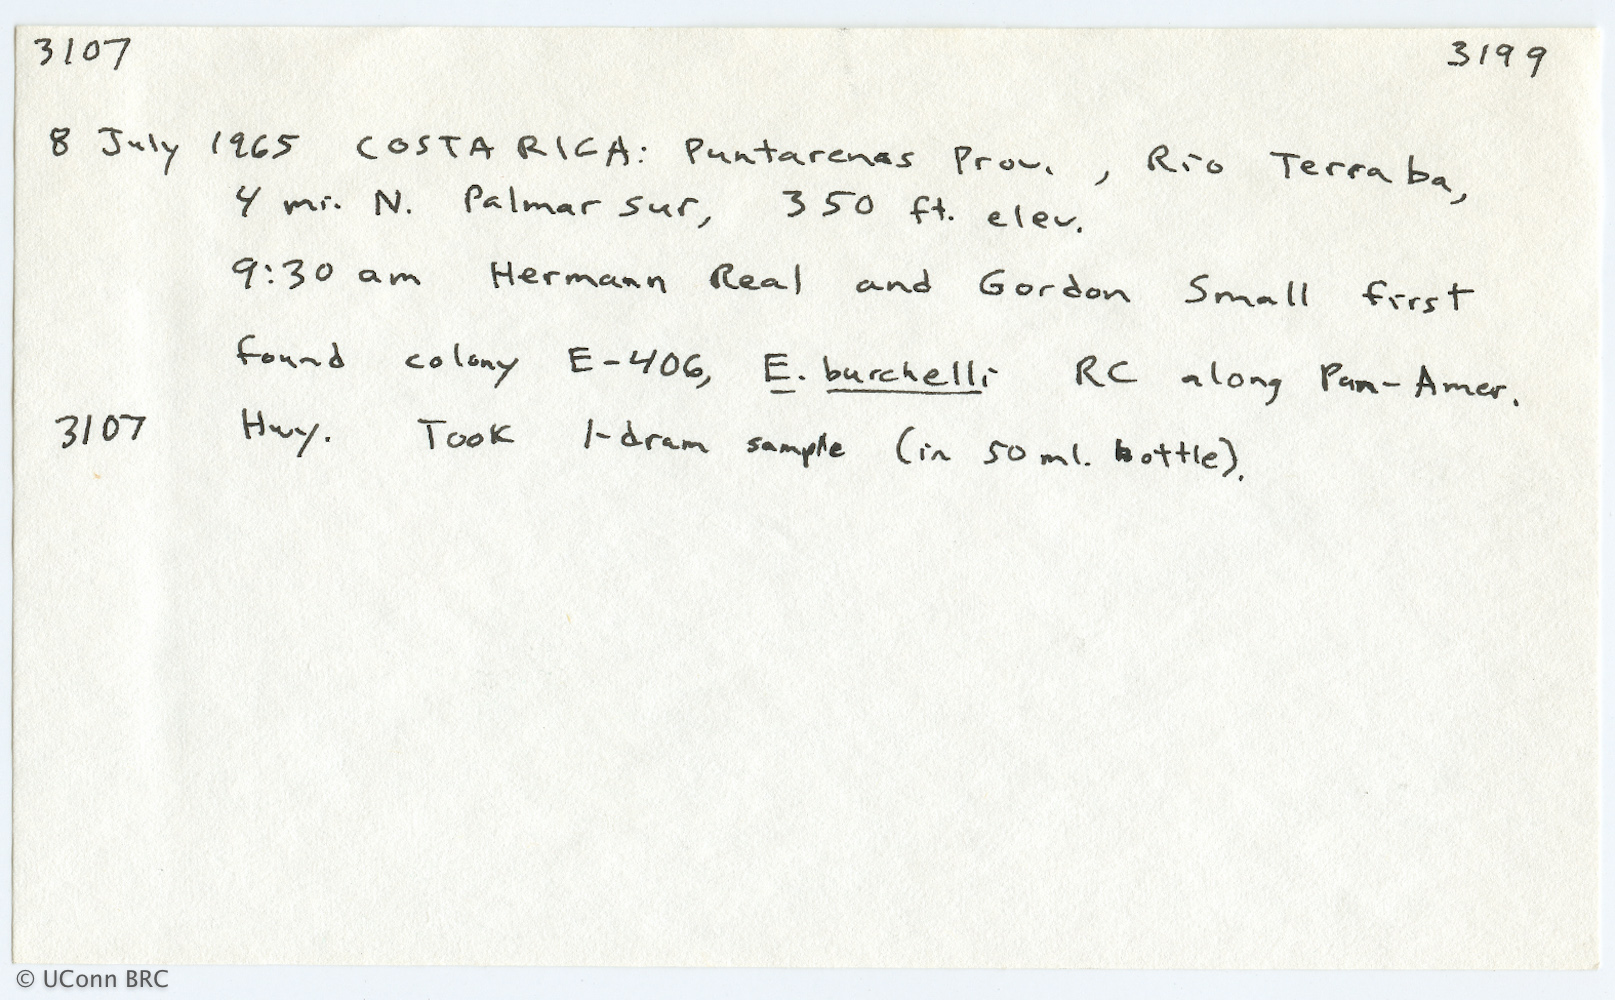 3107 3199
8 July 1965 COSTA RICA: Puntarenas Prov., Rio Terraba,
4 mi. N. Palmar Sur, 350 ft. elev.
9:30 am Hermann Real and Gordon Small first
found colony E-406, E. burchelli RC along Pan-Amer.
3107 Hwy. Took 1-dram sample (in 50 ml. bottle).
© UConn BRC